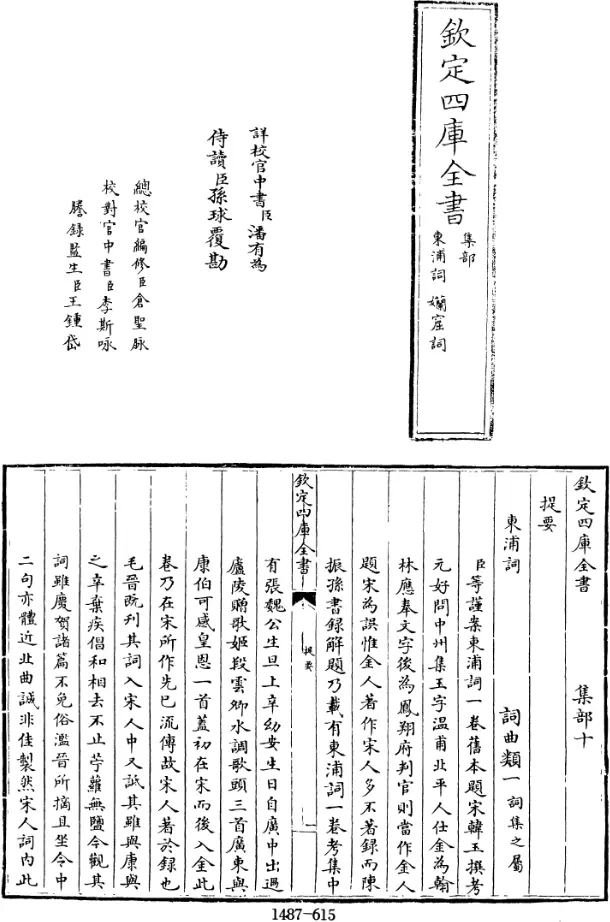 欽定四庫全書
集部
東浦詞 嬾窟詞
詳校官中書臣潘有為
侍讀臣孫球覆勘
總校官編修臣倉聖脉
校對官中書臣李斯咏
謄錄監生臣王鍾岱
欽定四庫全書 集部十
提要
東浦詞 詞曲類一 詞集之屬
臣等謹案東浦詞一卷舊本題宋韓玉撰考
元好問中州集玉字温甫北平人仕金為翰
林應奉文字後為鳳翔府判官則當作金人
題宋為誤惟金人著作宋人多不著録而陳
振孫書録解題乃載有東浦詞一卷考集中
欽定四庫全書
提要
一
有張魏公生旦上辛幼安生日自廣中出過
廬陵贈歌姬段雲卿水調歌頭三首廣東與
康伯可感皇恩一首蓋初在宋而後入金此
卷乃在宋所作先已流傳故宋人著於録也
毛晉既刊其詞入宋人中又詆其雖與康與
之辛棄疾倡和相去不止苧蘿無鹽今觀其
詞雖慶賀諸篇不免俗濫晉所摘且坐令中
二句亦體近北曲誠非佳製然宋人詞內此
1487-615